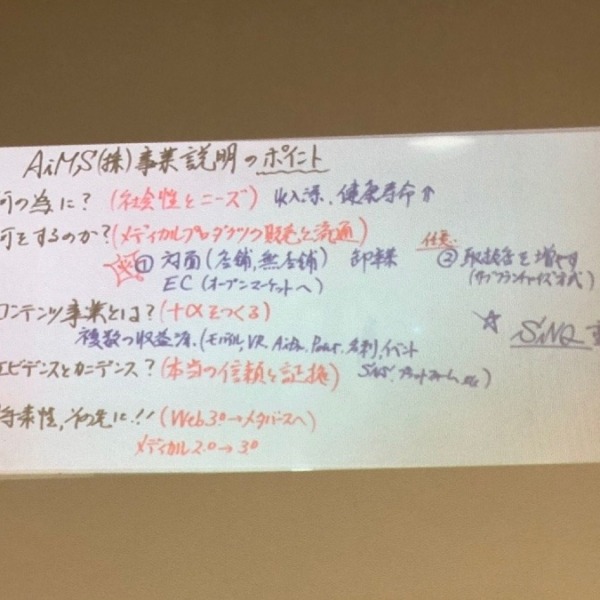 AiMS(株)事業説明のポイント
何の為に?(社会性とニーズ) 収入源、健康寿命↑
何をするのか?(メディカルプロダクツの販売と流通)
① 対面(店舗,無店舗) 卸業 任意 ② 取扱店を増やす
EC(オープンマーケットへ) (サブフランチャイズ方式)
コンテンツ事業とは?(+αをつくる)
複数の収益源.(モバイル,VR, イベント ☆ SiNQ
エビデンスとカニデンス?(本当の信頼と証拠) SNS,プラットフォーム,etc)
将来性,その先に!!(Web3.0→メタバースへ)
メディカル2.0→3.0